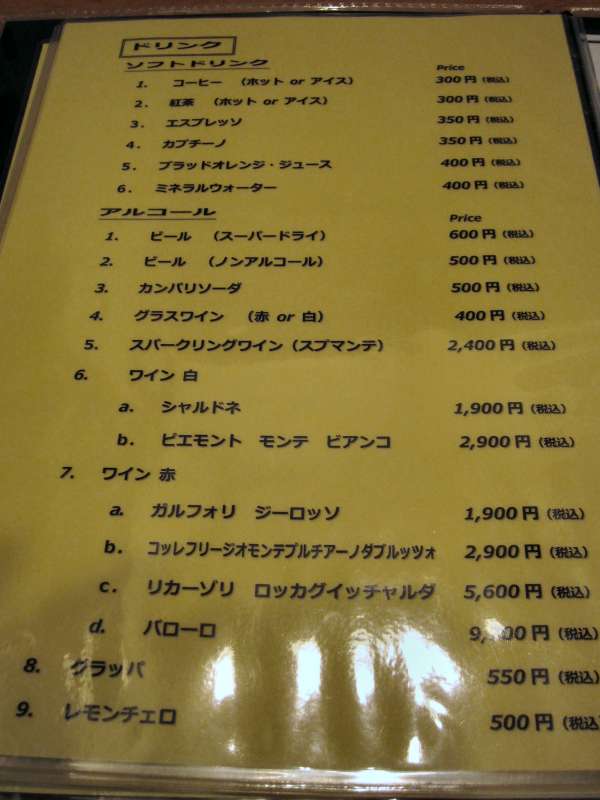 ドリンク
ソフトドリンク Price
1. コーヒー （ホット or アイス） 300円（税込）
2. 紅茶 （ホット or アイス） 300円（税込）
3. エスプレッソ 350円（税込）
4. カプチーノ 350円（税込）
5. ブラッドオレンジ・ジュース 400円（税込）
6. ミネラルウォーター 400円（税込）
アルコール Price
1. ビール （スーパードライ） 600円（税込）
2. ビール （ノンアルコール） 500円（税込）
3. カンパリソーダ 500円（税込）
4. グラスワイン （赤 or 白） 400円（税込）
5. スパークリングワイン（スプマンテ） 2,400円（税込）
6. ワイン 白
a. シャルドネ 1,900円（税込）
b. ピエモント モンテ ビアンコ 2,900円（税込）
7. ワイン 赤
a. ガルフォリ ジーロッソ 1,900円（税込）
b. コッレフリージオモンテプルチアーノダブルッツォ 2,900円（税込）
c. リカーゾリ ロッカグイッチャルダ 5,600円（税込）
d. バローロ 円（税込）
8. グラッパ 550円（税込）
9. レモンチェロ 500円（税込）